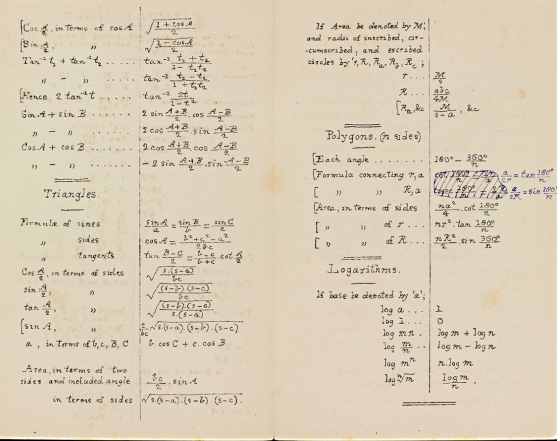 [Cos A/2, in terms of cos A √(1 + cos A)/2
[Sin A/2, " √(1 − cos A)/2
Tan⁻¹ t₁ + tan⁻¹ t₂ ...... tan⁻¹ (t₁ + t₂)/(1 − t₁t₂)
" − " ...... tan⁻¹ (t₁ − t₂)/(1 + t₁t₂)
[Hence 2 tan⁻¹ t ...... tan⁻¹ 2t/(1 − t²)
Sin A + sin B ...... 2 sin (A+B)/2 . cos (A−B)/2
" − " ...... 2 cos (A+B)/2 . sin (A−B)/2
Cos A + cos B ...... 2 cos (A+B)/2 . cos (A−B)/2
" − " ...... − 2 sin (A+B)/2 . sin (A−B)/2
Triangles.
Formulæ of sines sin A/a = sin B/b = sin C/c
" sides cos A = (b² + c² − a²)/2bc
" tangents tan (B−C)/2 = (b−c)/(b+c) . cot A/2
Cos A/2, in terms of sides √s.(s−a)/bc
sin A/2, " √(s−b).(s−c)/bc
tan A/2, " √(s−b).(s−c)/s.(s−a)
[sin A, " 2/bc √s.(s−a).(s−b).(s−c)
a, in terms of b, c, B, C b. cos C + c. cos B
Area, in terms of two
sides and included angle bc/2 . sin A
in terms of sides √s.(s−a).(s−b).(s−c).
If Area be denoted by M;
and radii of inscribed, cir-
cumscribed, and escribed
circles by r, R, Rₐ, R_b, R_c ;
r .... M/s
R .... abc/4M
[Rₐ, &c M/(s−a), &c
Polygons. (n sides)
[Each angle ...... 180° − 360°/n
[Formula connecting r, a a/2r = tan 180°/n
[ " " R, a a/2R = sin 180°/n
[Area, in terms of sides na²/4 . cot 180°/n
[ " " of r ... nr². tan 180°/n
[ " " of R ... nR²/2 sin 360°/n
Logarithms.
If base be denoted by 'a';
log a .... 1
log 1 .... 0
log mn .. log m + log n
log m/n ... log m − log n
log mⁿ n. log m
log ⁿ√m log m/n .